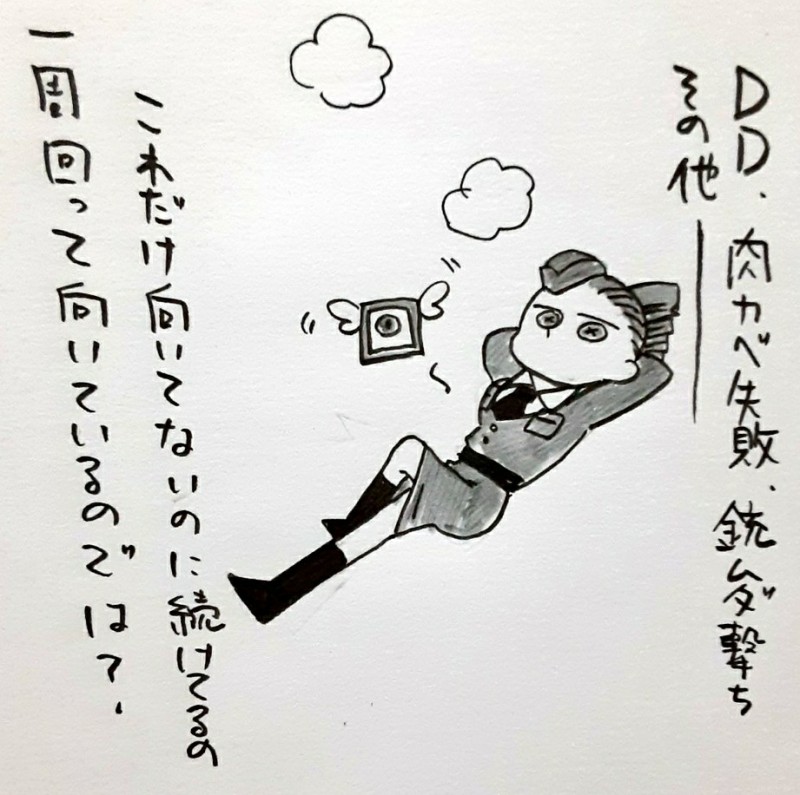 DD、肉カベ失敗、銃ムダ撃ち
その他
これだけ向いてないのに続けてるの
一周回って向いているのでは？、